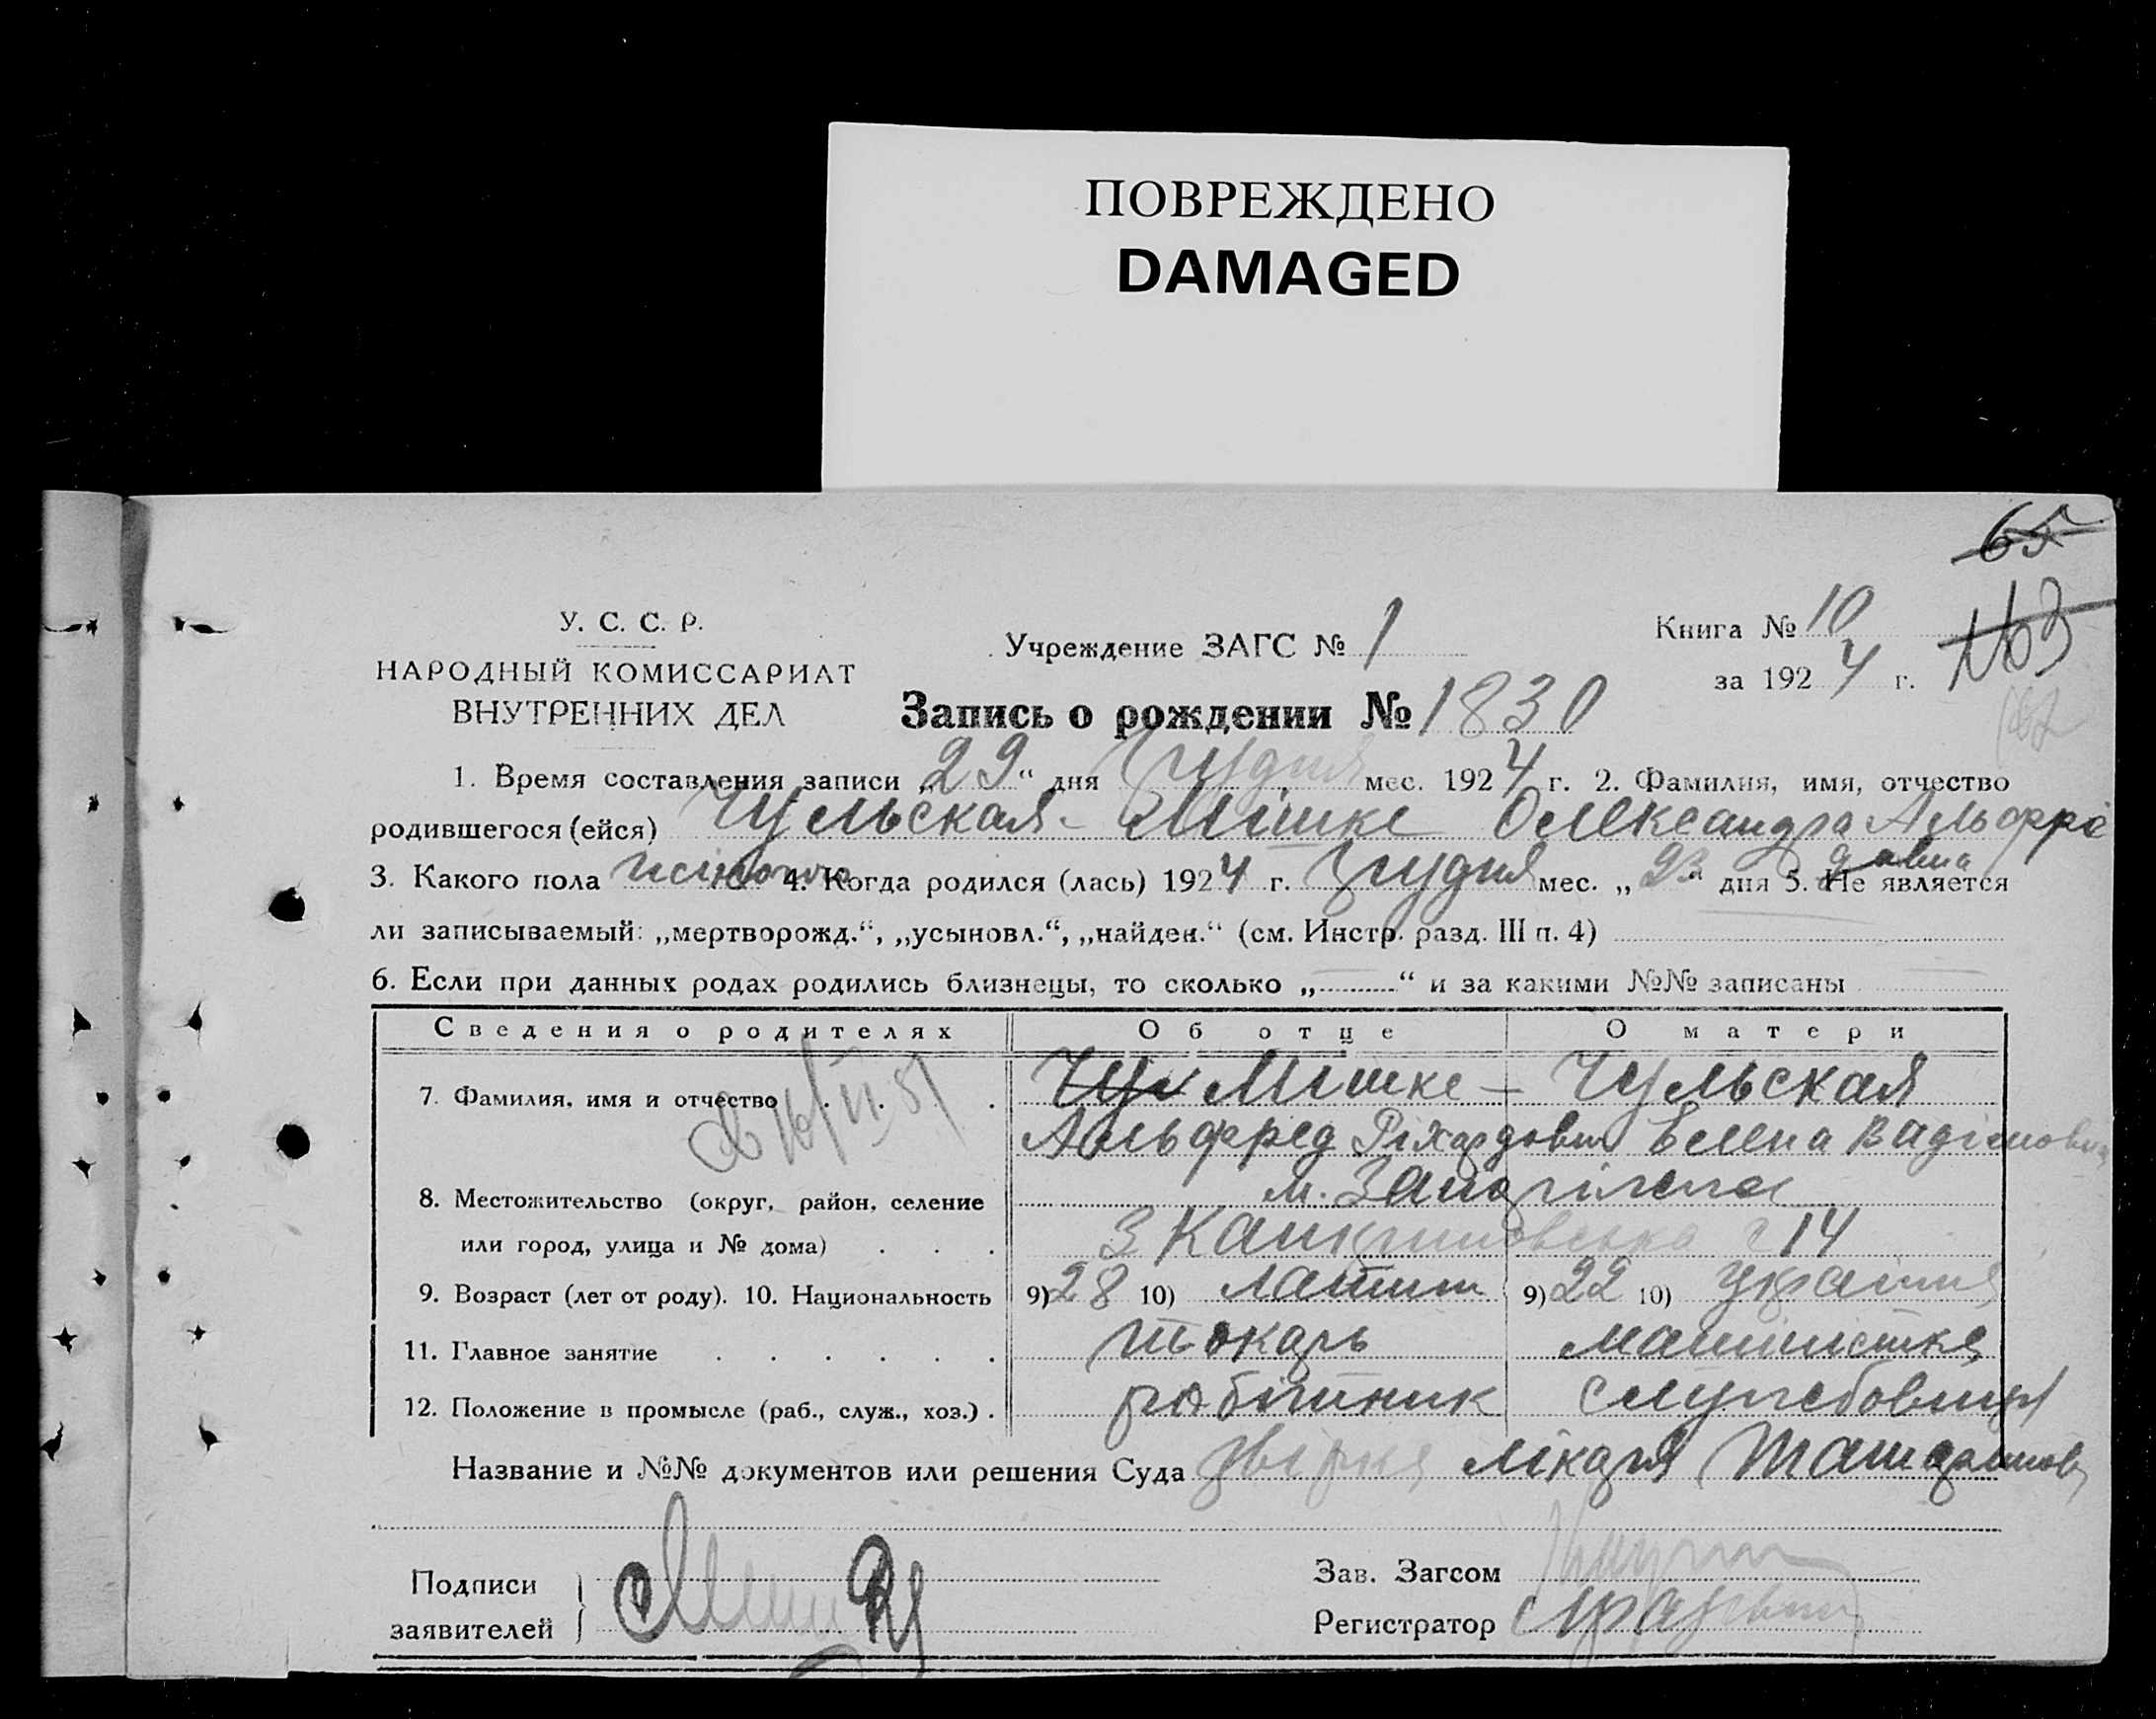 ПОВРЕЖДЕНО
DAMAGED
65
У. С. С. Р.
НАРОДНЫЙ КОМИССАРИАТ
ВНУТРЕННИХ ДЕЛ
Учреждение ЗАГС № 1
Книга № 10
за 1924 г.
163
Запись о рождении № 1830
1. Время составления записи „29“ дня Грудня мес. 1924 г. 2. Фамилия, имя, отчество
родившегося (ейся) Чульская - Мішке Олександра Альфре
довна
3. Какого пола жіночо 4. Когда родился (лась) 1924 г. Грудня мес. „23“ дня 5. Не является
ли записываемый: „мертворожд.“, „усыновл.“, „найден.“ (см. Инстр. разд. III п. 4)
6. Если при данных родах родились близнецы, то сколько „ — “ и за какими №№ записаны
Сведения о родителях Об отце О матери
7. Фамилия, имя и отчество Чул Мішке - Чульская
Альфред Ріхардович Елена Вадімовна
8. Местожительство (округ, район, селение м.
или город, улица и № дома) 14
9. Возраст (лет от роду). 10. Национальность 9) 28 10) латиш 9) 22 10) україн
11. Главное занятие токарь машиністка
12. Положение в промысле (раб., служ., хоз.) робітник службовиця
Название и №№ документов или решения Суда лікаря
Подписи
заявителей
Зав. Загсом
Регистратор